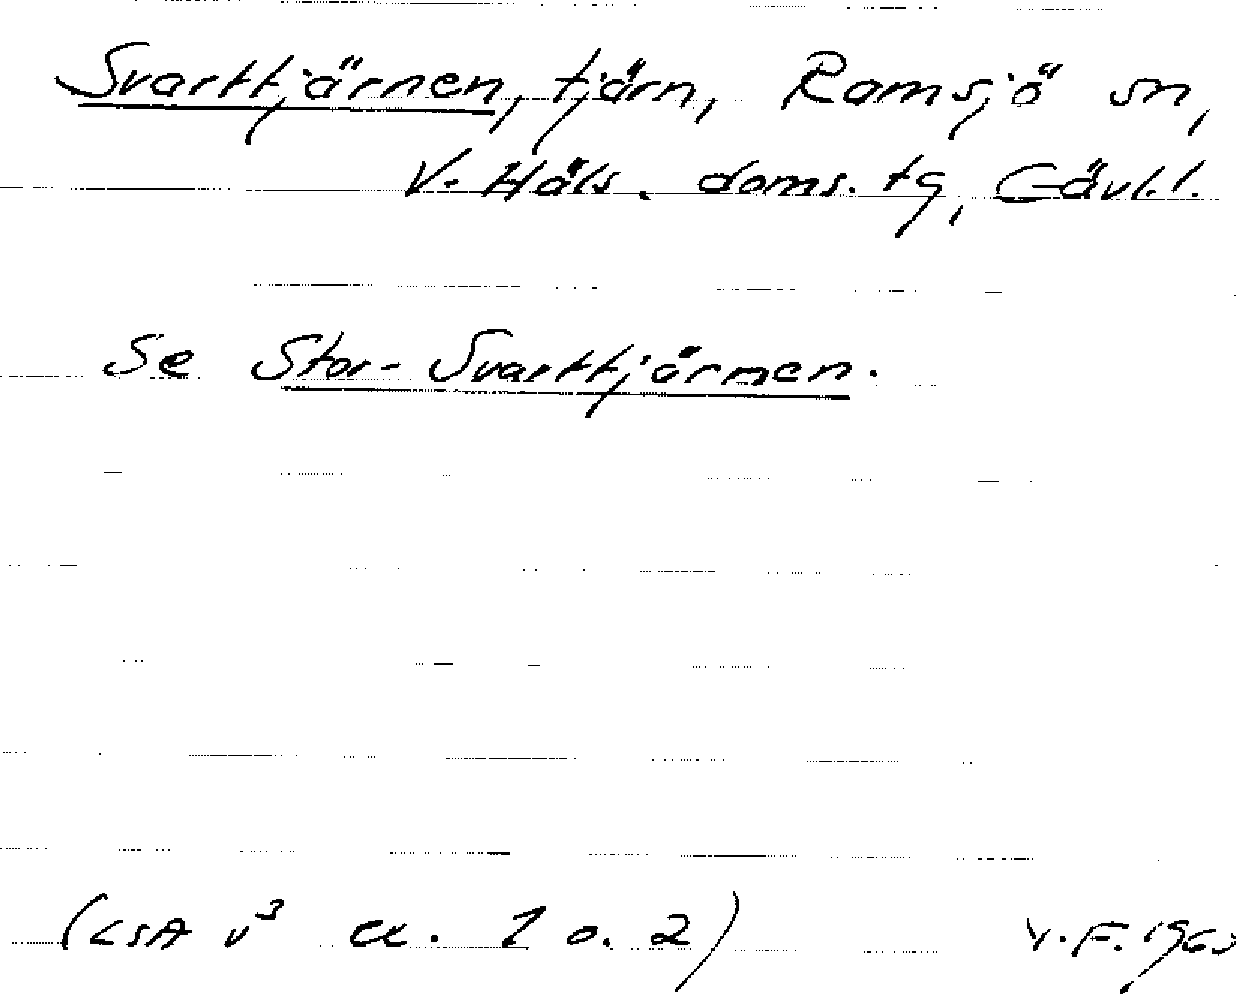 Svarttjärnen, tjärn, Ramsjö sn,
V. Häls. doms. tg, Gävl.l.
Se Stor-Svarttjärnen.
(LSA v³ a. 1 o. 2)
V.F.